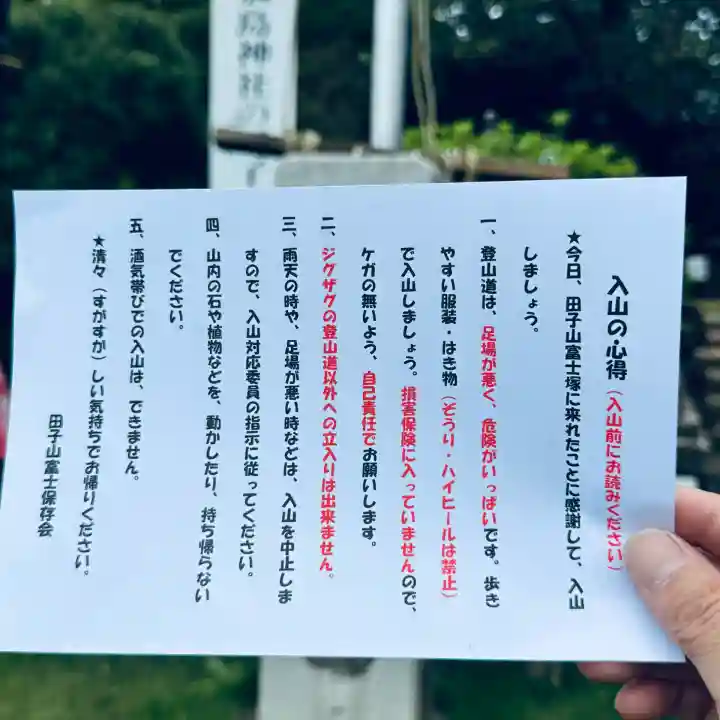 入山の心得(入山前にお読みください)
★今日、田子山富士塚に来れたことに感謝して、入山
しましょう。
一、登山道は、足場が悪く、危険がいっぱいです。歩き
やすい服装・はき物(ぞうり・ハイヒールは禁止)
で入山しましょう。損害保険に入っていませんので、
ケガの無いよう、自己責任でお願いします。
二、ジグザグの登山道以外への立入りは出来ません。
三、雨天の時や、足場が悪い時などは、入山を中止しま
すので、入山対応委員の指示に従ってください。
四、山内の石や植物などを、動かしたり、持ち帰らない
でください。
五、酒気帯びでの入山は、できません。
★清々(すがすが)しい気持ちでお帰りください。
田子山富士保存会